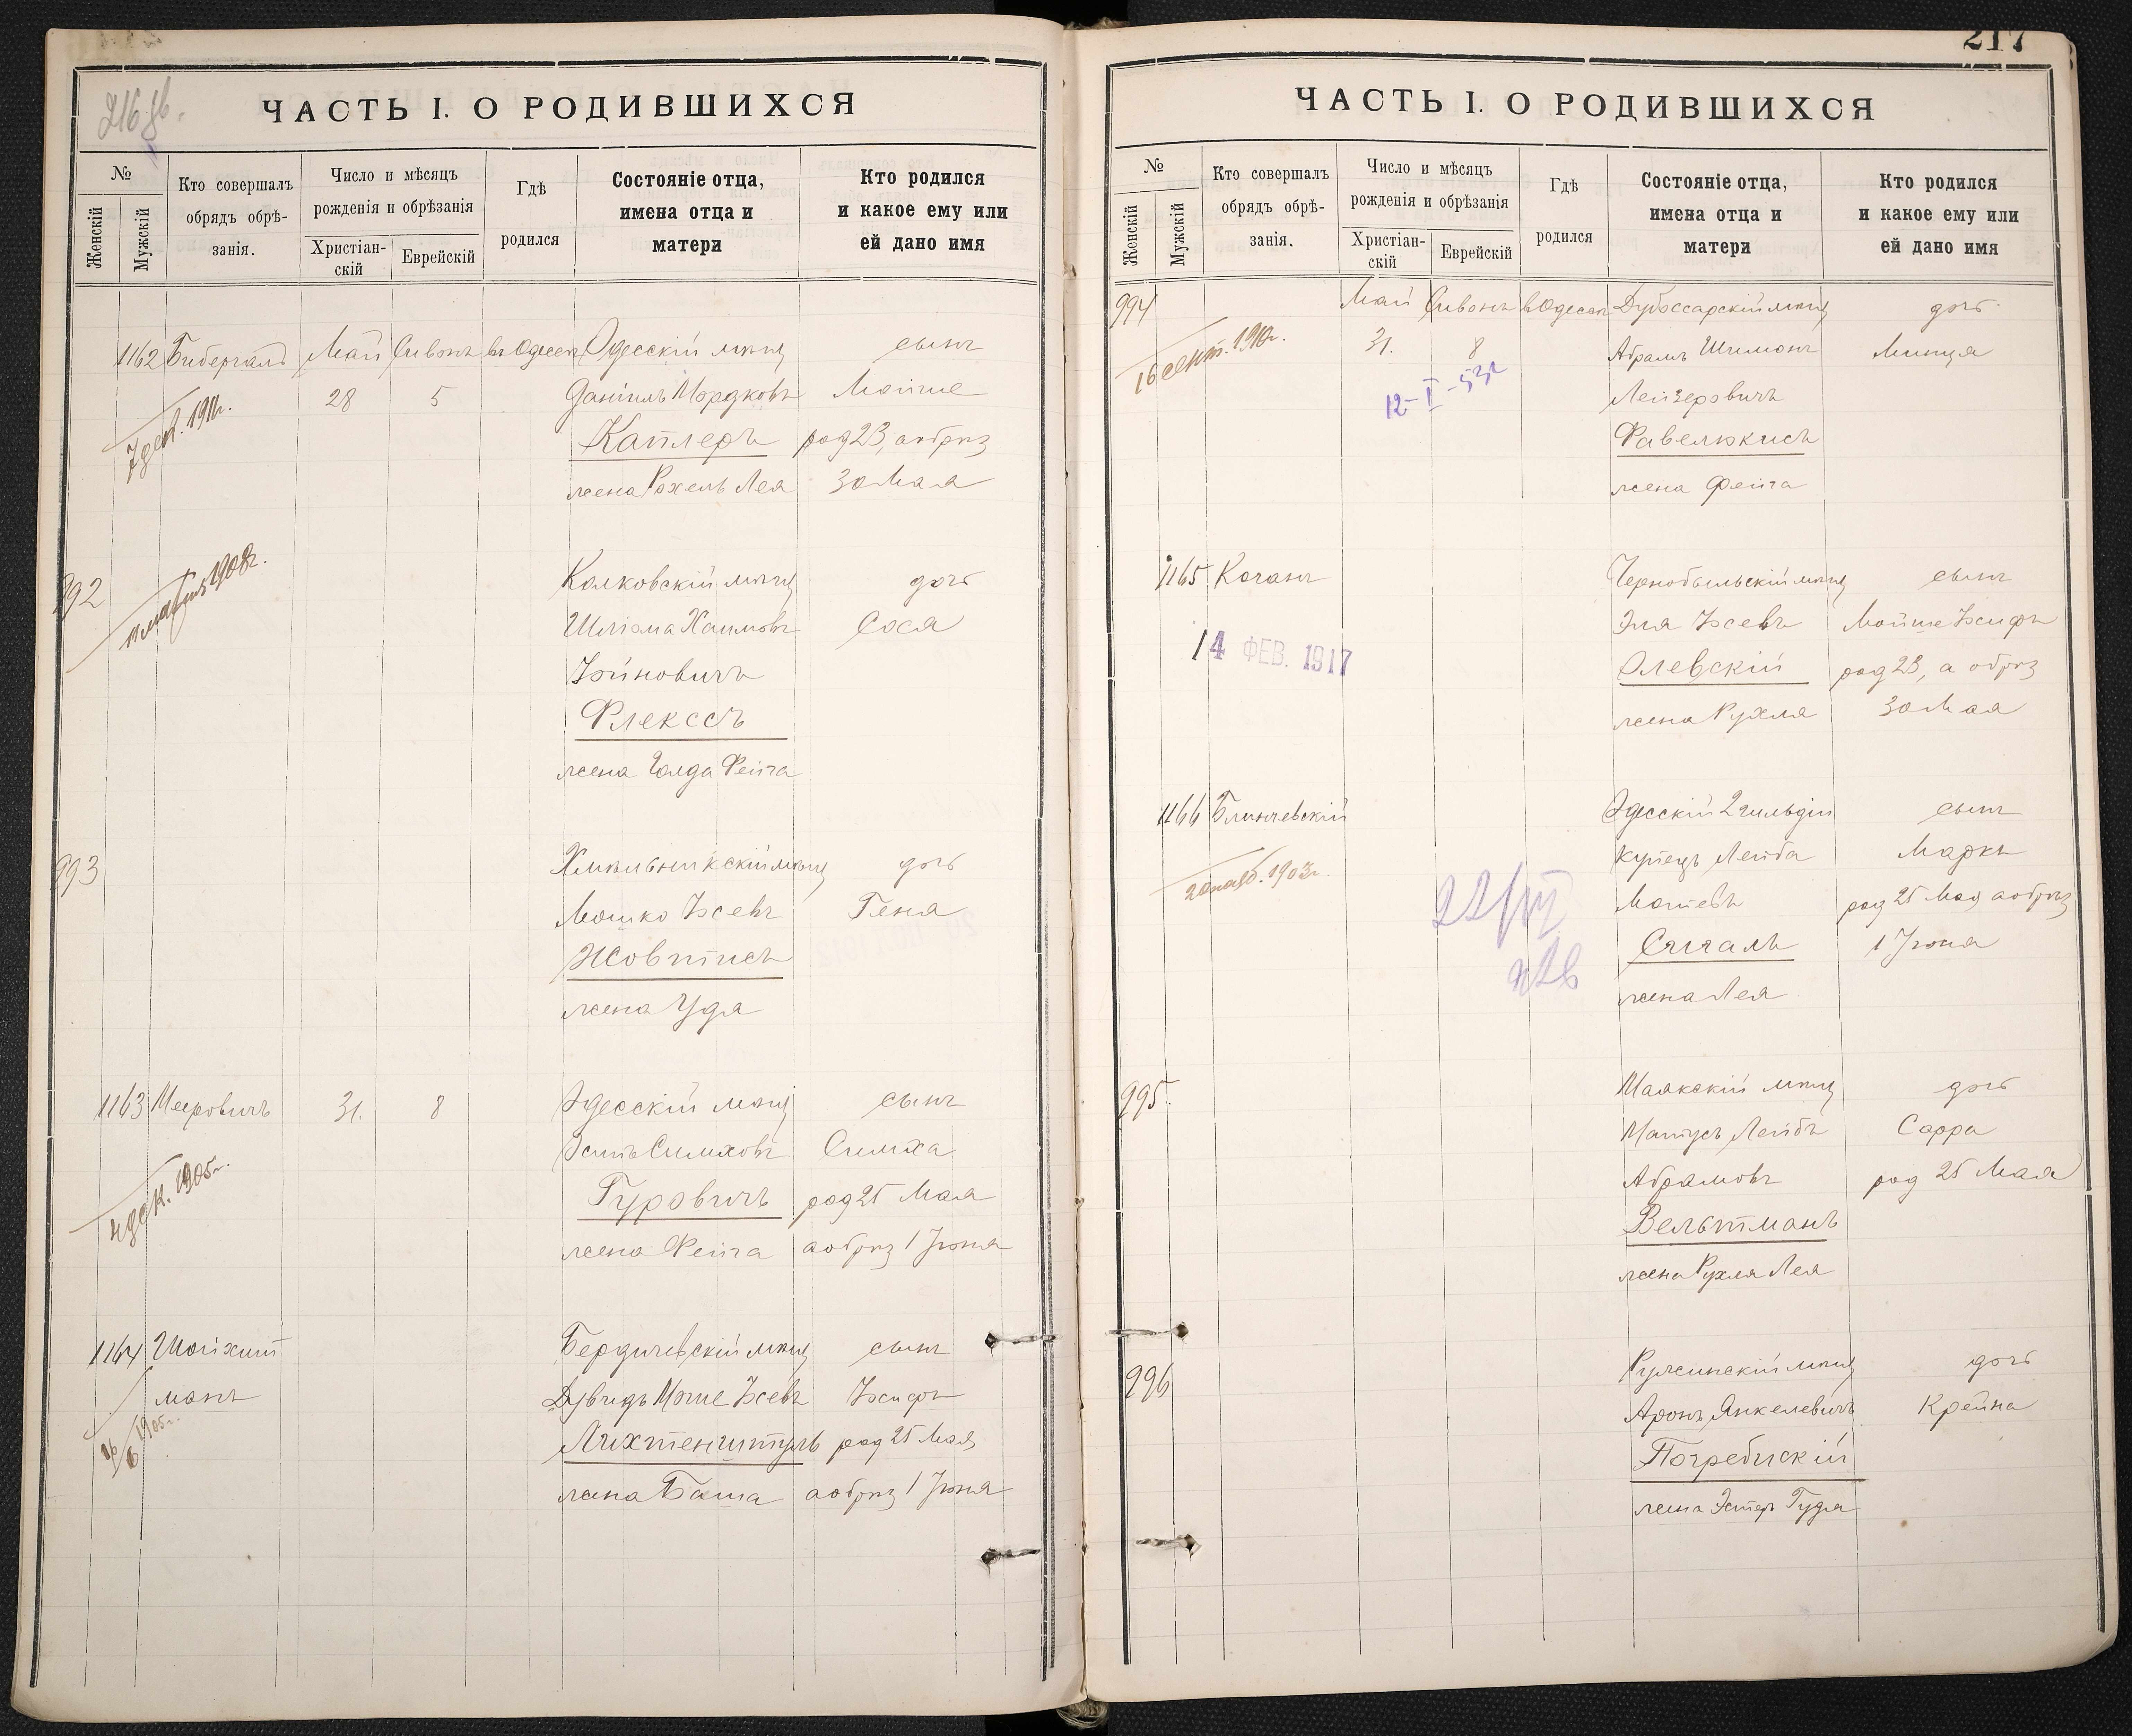 216 об.
ЧАСТЬ I. О РОДИВШИХСЯ
№
Женскій
Мужскій
Кто совершалъ
обрядъ обрѣ-
занія.
Число и мѣсяцъ
рожденія и обрѣзанія
Христіан-
скій
Еврейскій
Гдѣ
родился
Состояніе отца,
имена отца и
матери
Кто родился
и какое ему или
ей дано имя
1162 Бибергалъ Май Сивонъ въ Одессѣ Одесскій мѣщ сынъ
28 5 Даніилъ Мордковъ Мойше
7 дек. 1911г.
Каплеръ род 23, а обрѣз
жена Рохель Лея 30 Мая
992 Колковскій мѣщ дочь
1908г.
Шліома Хаимовъ Сося
Флексъ
жена Голда Фейга
993 Хмѣльникскій мѣщ дочь
Мошко Іосевъ Геня
Жовтисъ
жена Удя
1163 Мееровичъ 31. 8 Одесскій мѣщ сынъ
Симховъ Симха
4 дек. 1905г.
Гуровичъ род 25 Мая
жена Фейга а обрѣз 1 Іюня
1164 Шойхит Бердичевскій мѣщ сынъ
манъ Дувидъ Мойше Іосевъ Іосифъ
1905г.
Лихтенштуль род 25 Мая
жена Бася а обрѣз 1 Іюня
217
ЧАСТЬ I. О РОДИВШИХСЯ
№
Женскій
Мужскій
Кто совершалъ
обрядъ обрѣ-
занія.
Число и мѣсяцъ
рожденія и обрѣзанія
Христіан-
скій
Еврейскій
Гдѣ
родился
Состояніе отца,
имена отца и
матери
Кто родился
и какое ему или
ей дано имя
994 Май Сивонъ въ Одессѣ Дубоссарскій мѣщ дочь
16 сент. 1910г. 31. 8 Абрамъ Шимонъ Минця
12-I-53г
Лейзеровичъ
Фавелюкисъ
жена Фейга
1165 Коганъ Чернобыльскій мѣщ сынъ
Эля Іосевъ Мойше Іосифъ
14 ФЕВ. 1917
Олевскій род 23, а обрѣз
жена Рухля 30 Мая
1166 Блинчевскій Одесскій 2 гильдіи сынъ
купецъ Лейба Маркъ
1903г.
22/VI
Мотевъ род 25 Мая а обрѣз
Сигалъ 1 Іюня
жена Лея
995. Маякскій мѣщ дочь
Матусъ Лейбъ Сарра
Абрамовъ род 25 Мая
Вельтманъ
жена Рухля Лея
996 Ружинскій мѣщ дочь
Аронъ Янкелевичъ Крейна
Погребискій
жена Эстер Гудя